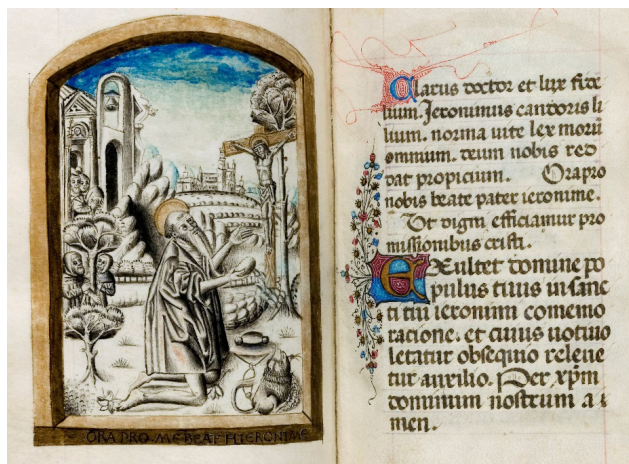 ORA PRO ME BEATE HIERONIME
Clarus doctor et lux fide
lium. Jeronimus candoris li
lium. norma uite lex moru
omnium. deum nobis red
dat propicium. Ora pro
nobis beate pater ieronime.
Ut digni efficiamur pro
missionibus cristi.
Exultet domine po
pulus tuus in sanc
ti tui ieronimi comemo
racione. et cuius uotiuo
letatur obsequio releue
tur auxilio. Per xp̄m
dominum nostrum a
men.